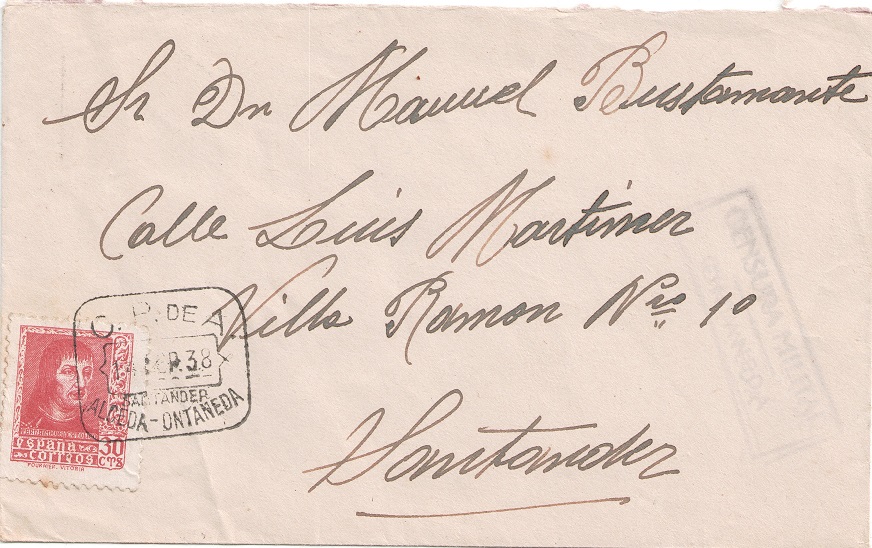 Sr Dn Manuel Bustamante
Calle Luis Martinez
Villa Ramon Nro 10
Santander
C. P. DE A
SEP. 38
SANTANDER
ALCEDA-ONTANEDA
30
españa
correos CTS
FOURNIER. VITORIA
CENSURA MILITAR
ONTANEDA